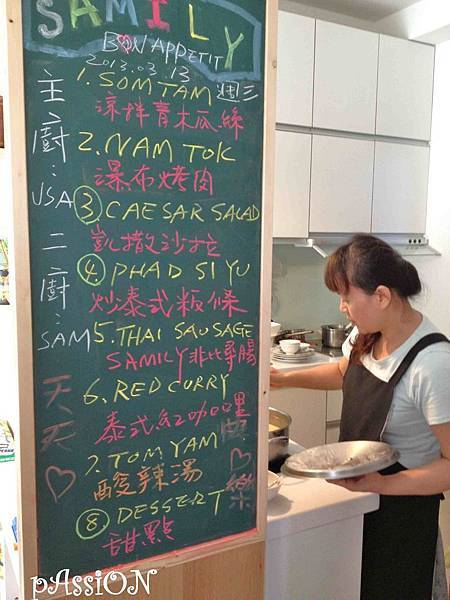 SAMILY
BON APPETIT
2013.03.13
週三
1. SOM TAM
涼拌青木瓜絲
2. NAM TOK
瀑布烤肉
3 CAESAR SALAD
凱撒沙拉
4. PHAD SI YU
炒泰式粄條
5. THAI SAUSAGE
SAMILY非比尋腸
6. RED CURRY
泰式紅咖哩
7. TOM YAM
酸辣湯
8. DESSERT
甜點
主廚:
USA
二廚:
SAM
天天♡
♡樂
pAssiON